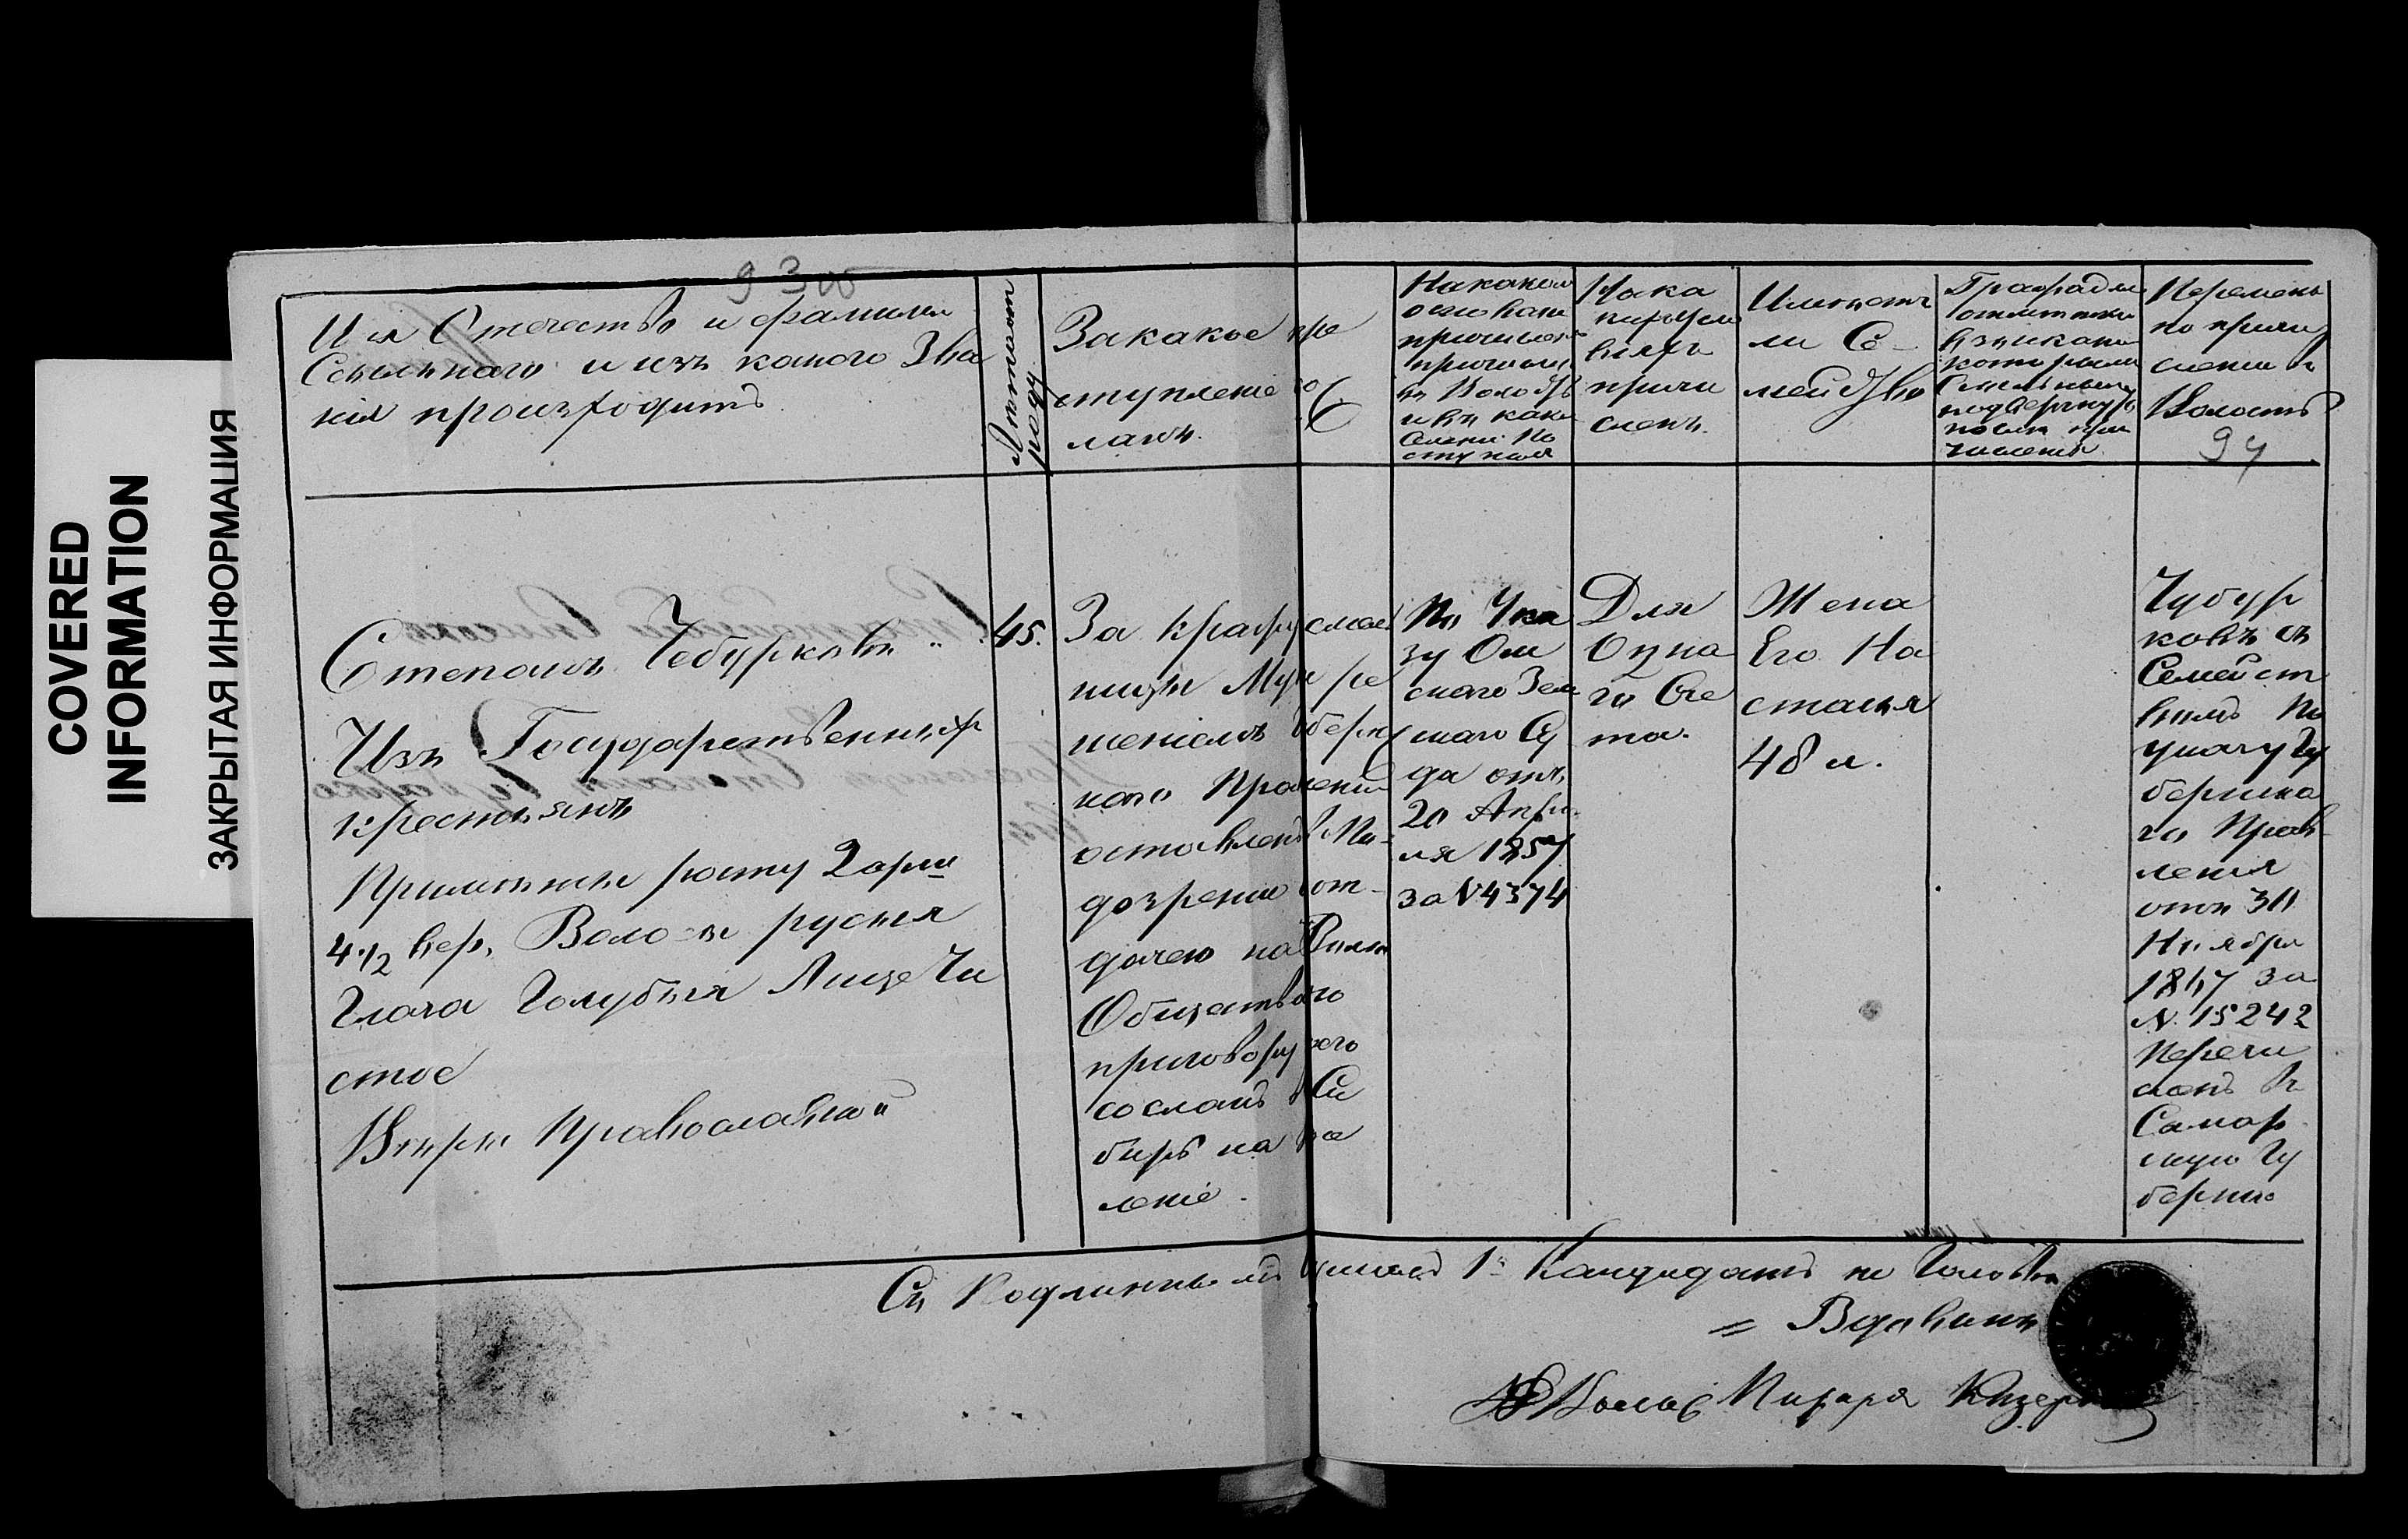 COVERED
INFORMATION
ЗАКРЫТАЯ ИНФОРМАЦИЯ
93 об
Имя Отечество и фамилия
Ссыльнаго и изъ какого Зва
нія происходитъ
Лѣтъ отъ
роду
За какое пре
ступленіе со
ланъ.
На какомъ
основаніи
причислен
въ Волость
и въ какі
селеніи по
ступилъ
окладъ
причи
сленъ.
Имѣетъ
ли Се-
мейство
Графа для
отмѣтки
взысканій
которымъ
Ссыльный
подвергнутъ
послѣ при
численія
Перемѣны
по причи
сленію въ
Волость
94
Степанъ Чебурковъ "
Изъ Государственныхъ
крестьянъ
Примѣты росту 2 арши
4 1/2 вер. Волосы русыя
Глаза Голубыя Лице Чи
стое
Вѣры Православной
45.
За кражу
ницы Му ре
шеніемъ Губерн
каго Правленія
оставленъ въ По-
дозреніи от-
дачею на Волю
Общества по
приговору кего
сосланъ въ Си
бирь на посе
леніе.
По Ука
зу Ом
скаго Зем
скаго Су
да отъ
20 Апрѣ
ля 1857
за № 4374
Для
Одна
го Сче
та.
Жена
Его На
стасья
48 л.
Чубур
ковъ съ
Семейст
вомъ По
указу Гу
бернска
го Прав
ленія
отъ 30
Ноября
1857 за
№ 15242
Перечи
сленъ въ
Самар
скую Гу
бернію
Съ Подлиннымъ вѣрно 1й Кандидатъ по Головѣ
= Вдовинъ
Волос Писаря